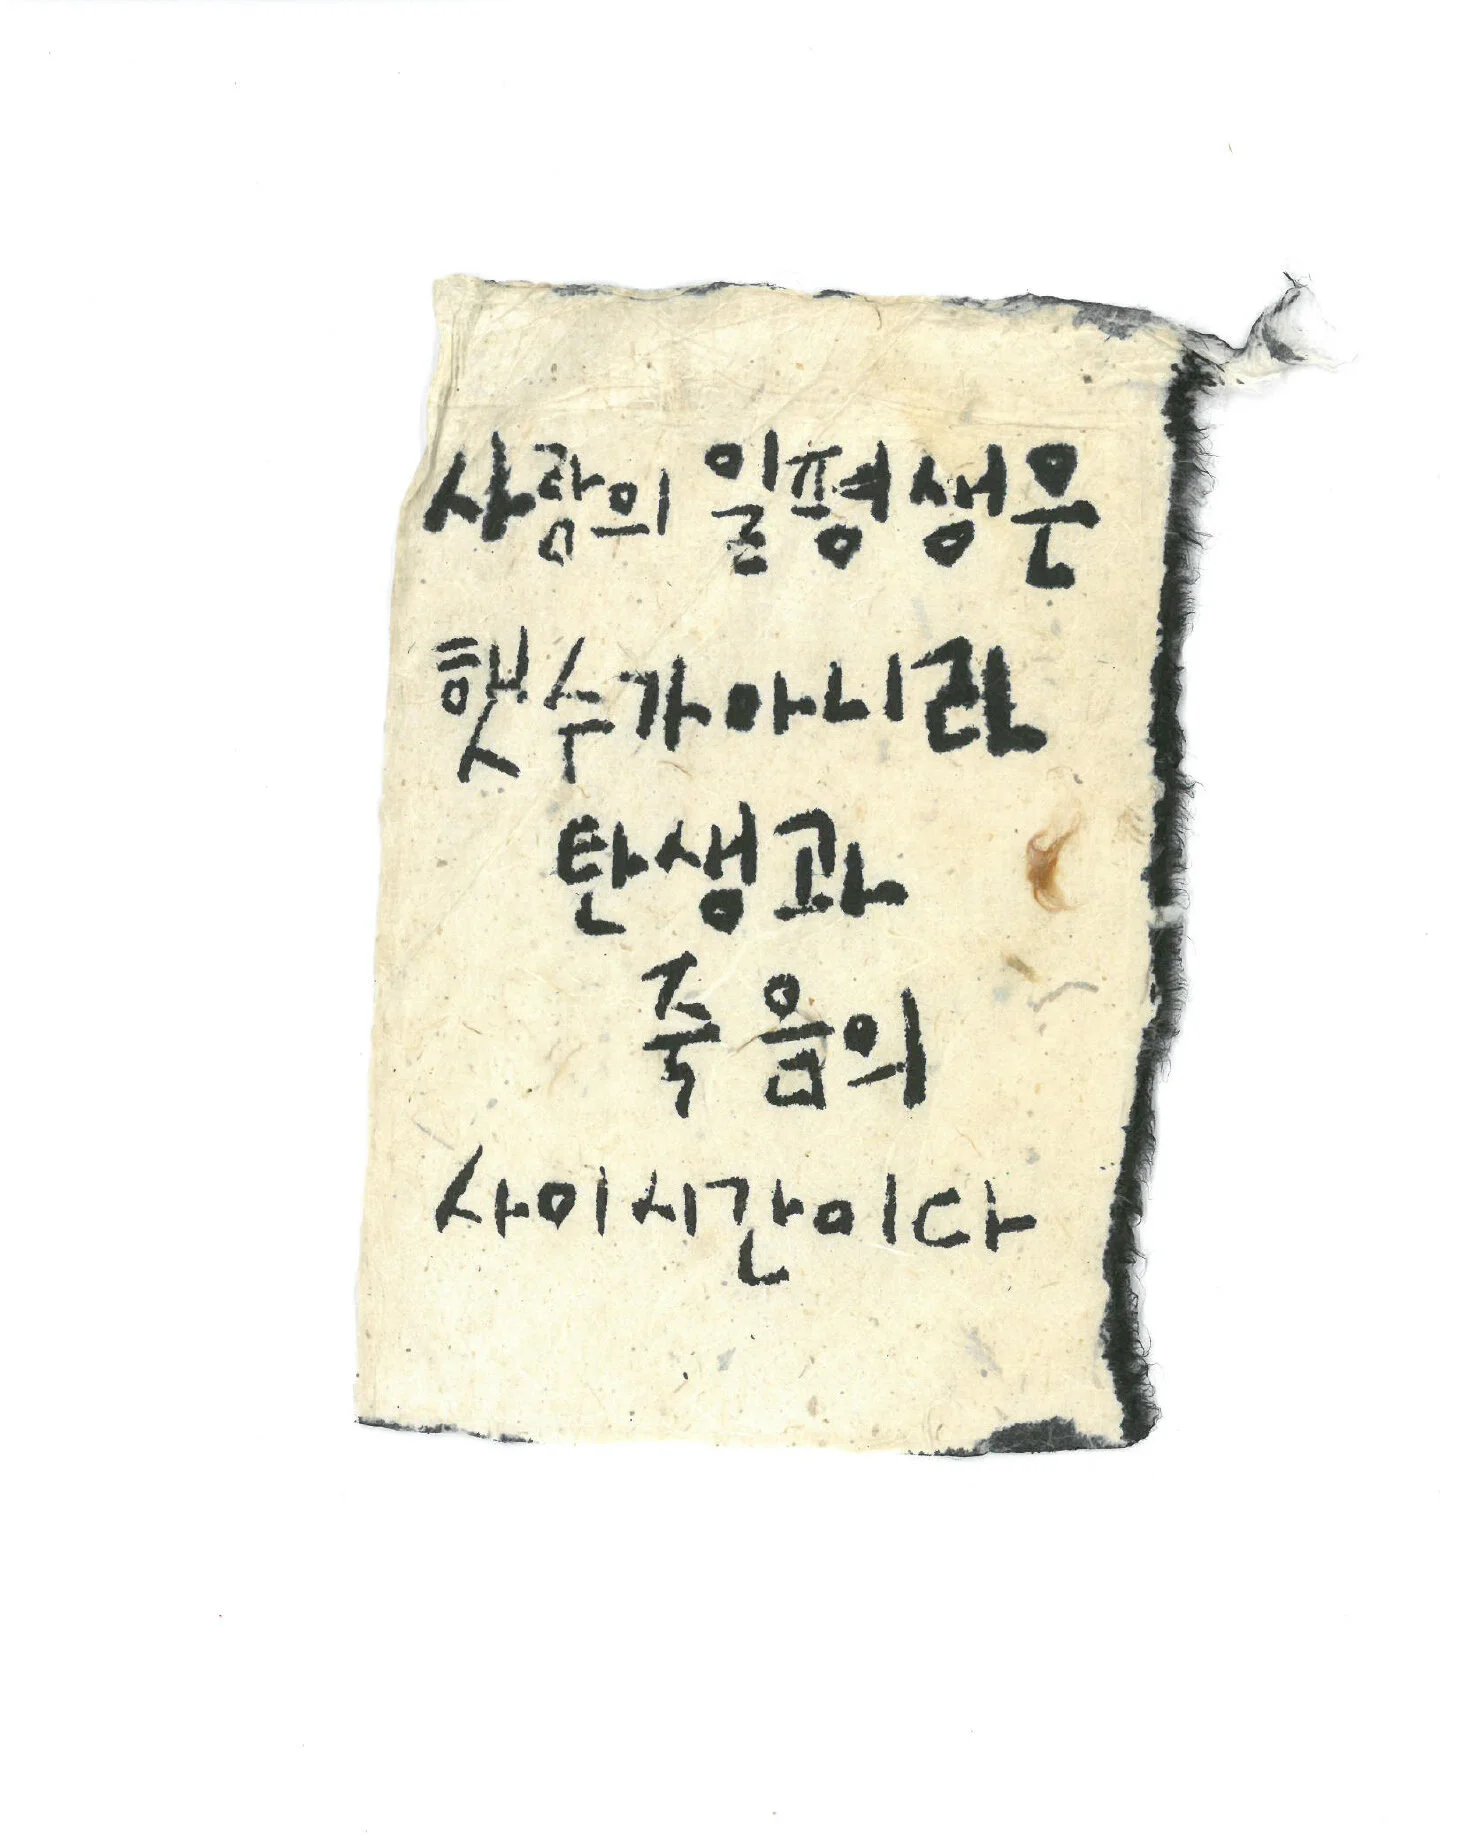 사람의 일평생은
햇수가아니라
탄생과
죽음의
사이시간이다